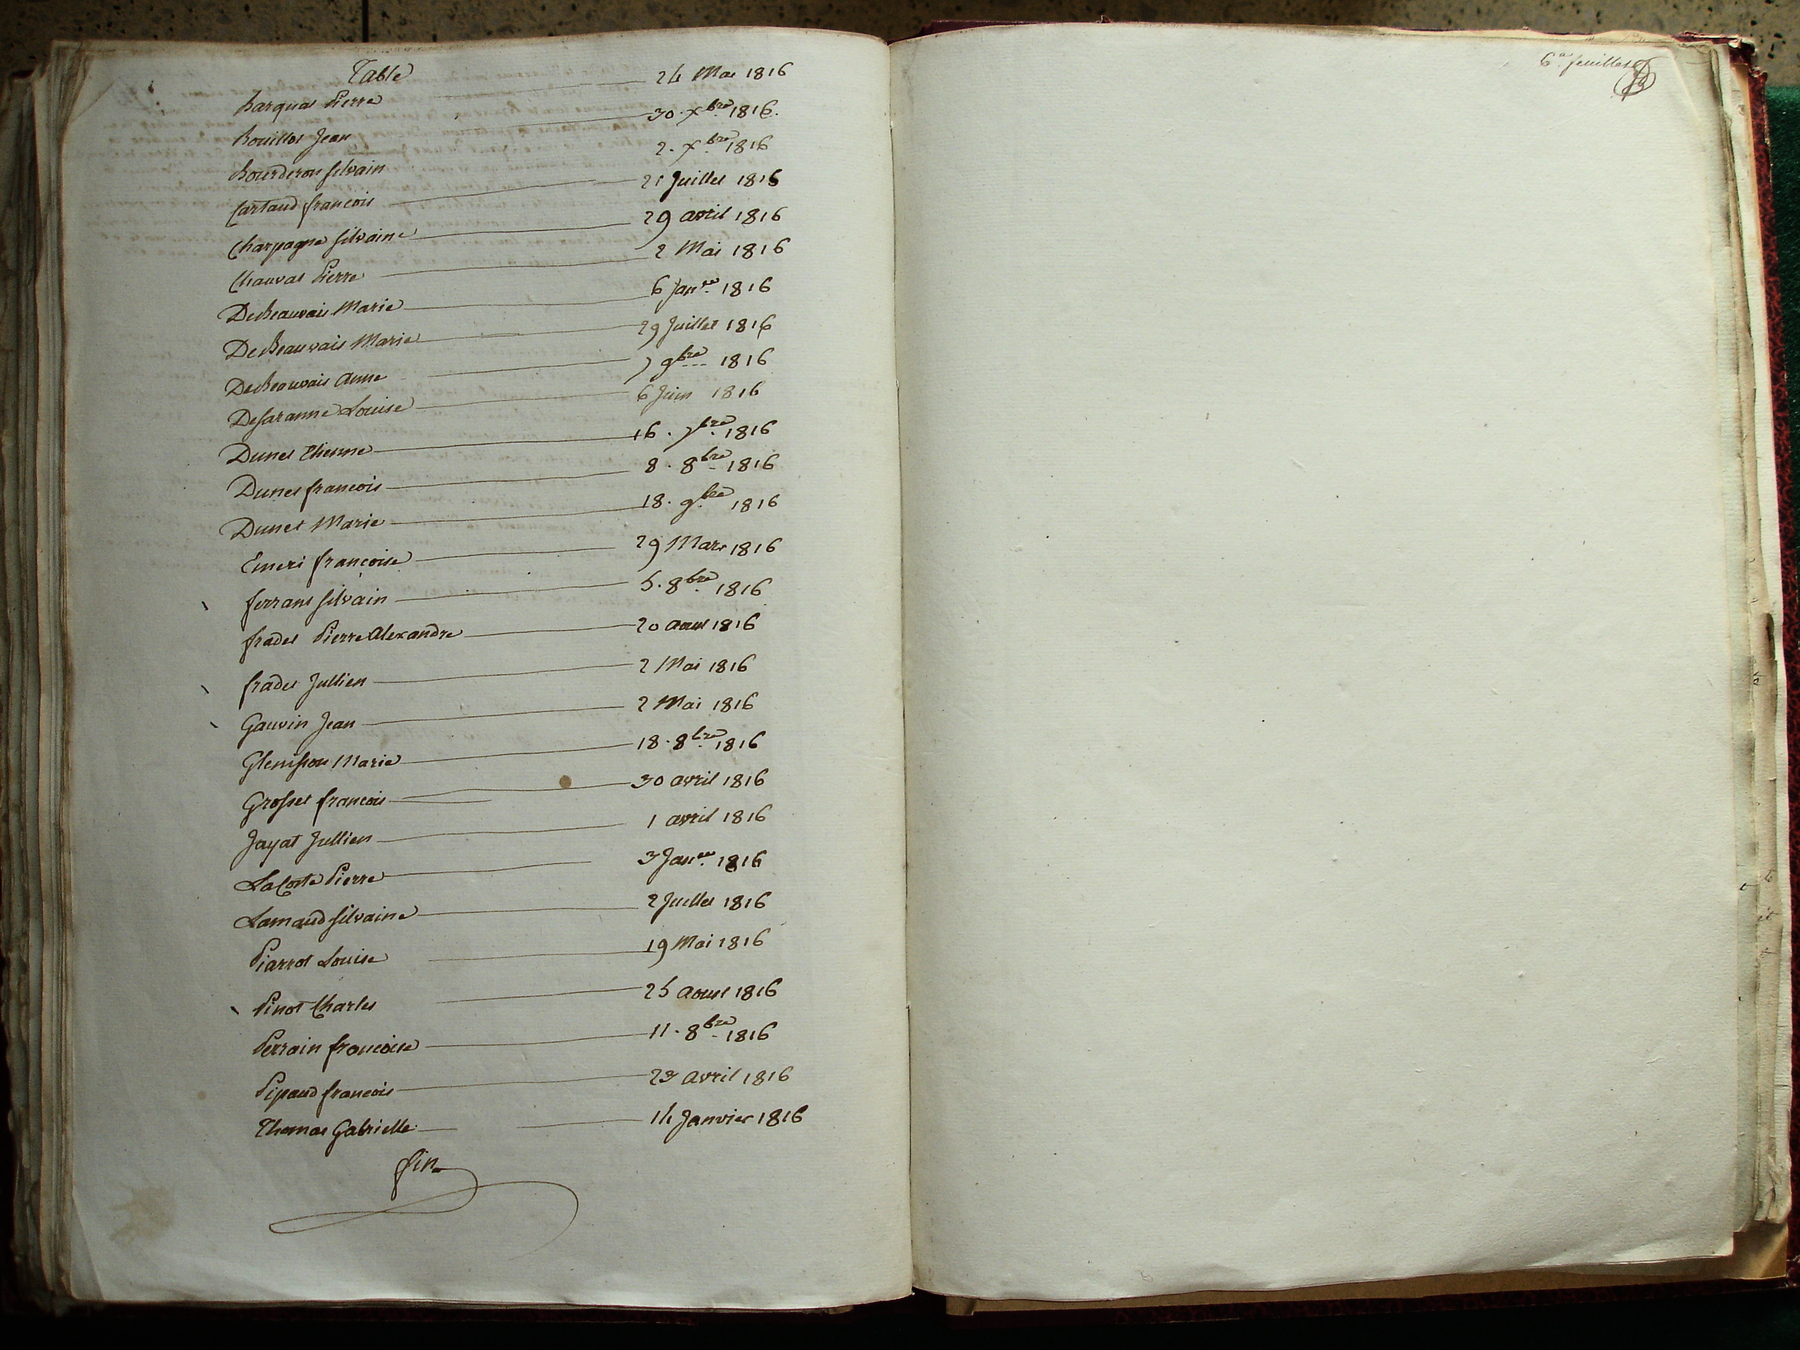 Table
Barquat Pierre 24 Mai 1816
Bouillot Jean 30. Xbre 1816.
Bourderon Silvain 2. Xbre 1816
Cartaud francois 21 Juillet 1816
Charpagne Silvaine 29 avril 1816
Chauvat Pierre 2 Mai 1816
DeBeauvais Marie 6 Janer. 1816
DeBeauvais Marie 29 Juillet 1816
DeBeauvais Anne 7 9bre 1816
Desaranne Louise 6 Juin 1816
Dunet Etienne 16. 7bre 1816
Dunet francois 8. 8bre 1816
Dunet Marie 18. 9bre 1816
Emeri francoise 29 Mars 1816
ferrant Silvain 5. 8bre 1816
fradet Pierre Alexandre 20 Aout 1816
fradet Jullien 2 Mai 1816
Gauvin Jean 2 Mai 1816
Glenisson Marie 18. 8bre 1816
Grosset francois 30 avril 1816
Jayat Jullien 1 avril 1816
LaCoste Pierre 3 Janer. 1816
Lamaud Silvaine 2 Juillet 1816
Piarrot Louise 19 Mai 1816
Pinot Charles 25 Aoust 1816
Perrain francoise 11. 8bre 1816
Pipaud francois 23 Avril 1816
Thomas Gabrielle 14 Janvier 1816
fin
feuillet